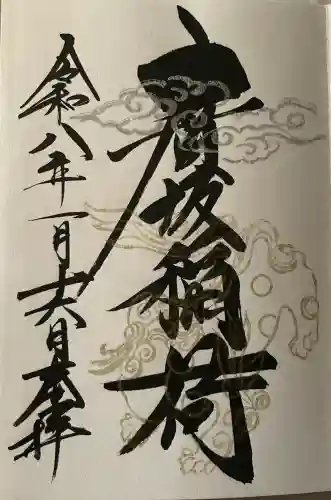 坂稲荷
令和八年一月十六日奉拝